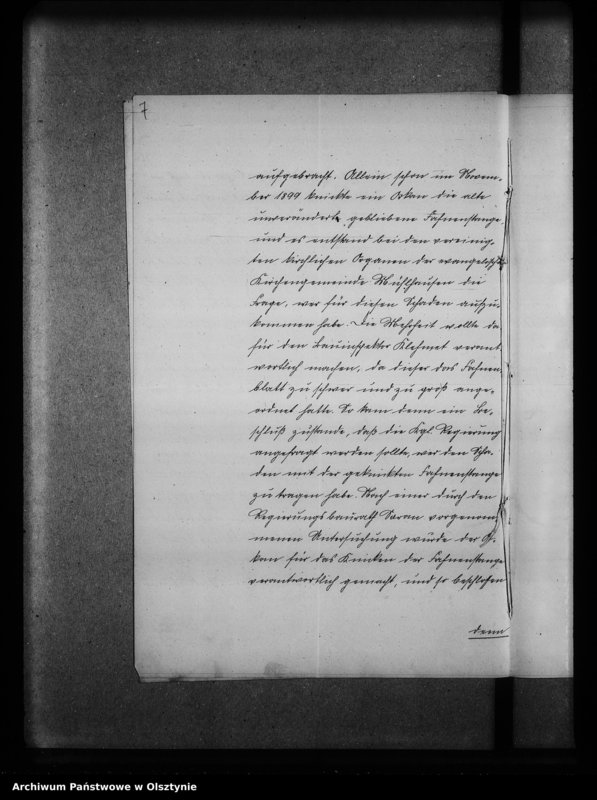 7
aufgebracht. Allein schon im Novem-
ber 1899 knickte ein Orkan die alte
unverändert gebliebene Fahnenstange
und es entstand bei den vereinig-
ten kirchlichen Organen der evangelischen
Kirchengemeinde Mühlhausen die
Frage, wer für diesen Schaden aufzu-
kommen habe. Die Mehrheit wollte da-
für den Bauinspektor Klehmet verant-
wortlich machen, da dieser das Fahnen-
blatt zu schwer und zu groß ange-
ordnet hatte. So kam denn ein Be-
schluß zustande, daß die Kgl. Regierung
angefragt werden sollte, wer den Scha-
den mit der geknickten Fahnenstange
zu tragen habe. Nach einer durch den
Regierungsbaurath Saran vorgenom-
menen Untersuchung wurde der Or-
kan für das Knicken der Fahnenstange
verantwortlich gemacht, und so beschlossen
denn
Archiwum Państwowe w Olsztynie